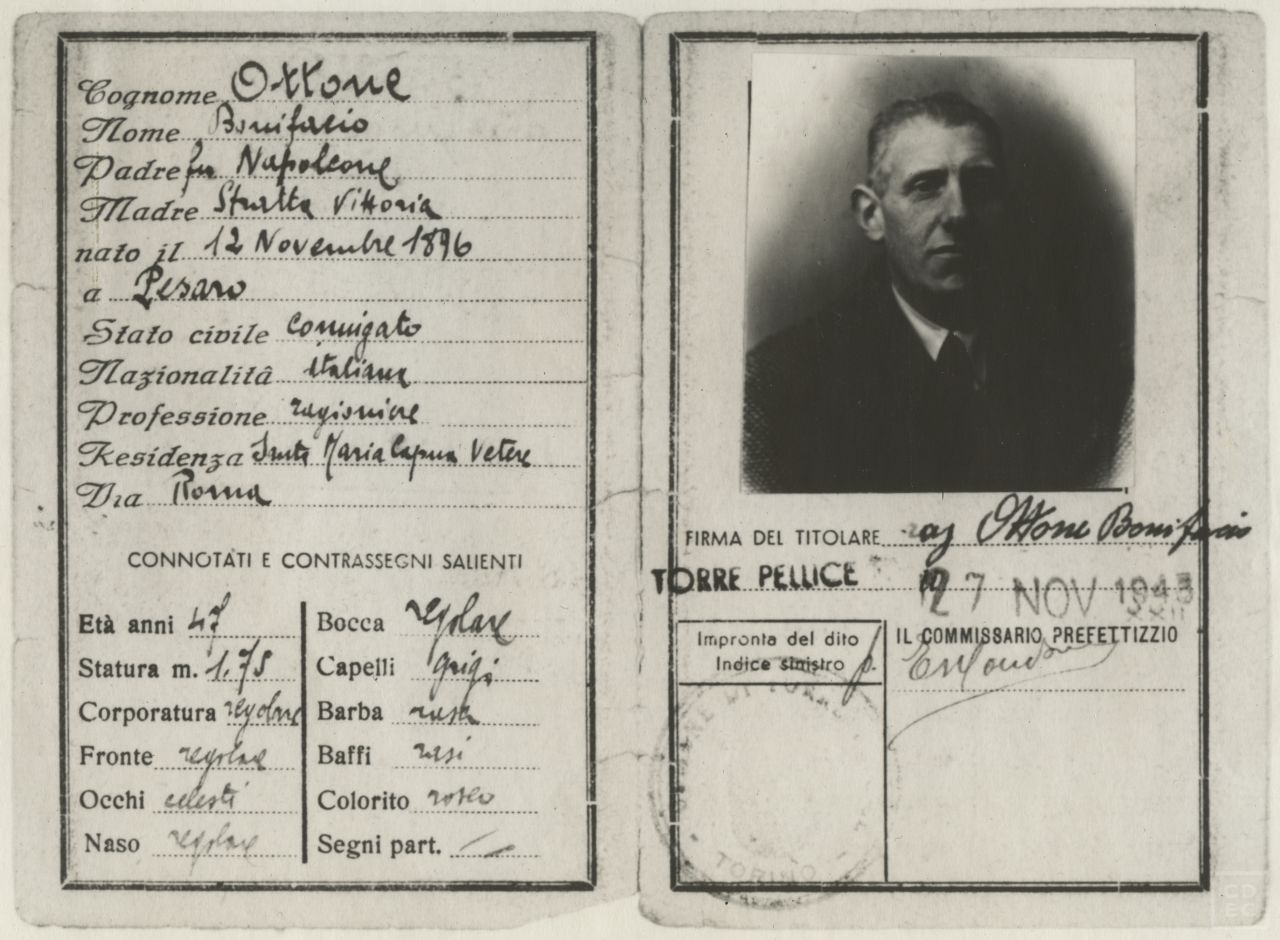 Cognome Ottone
Nome Bonifacio
Padre fu Napoleone
Madre Stratta Vittoria
nato il 12 Novembre 1896
a Pesaro
Stato civile Coniugato
Nazionalità Italiana
Professione ragioniere
Residenza Santa Maria Capua Vetere
Via Roma
CONNOTATI E CONTRASSEGNI SALIENTI
Età anni 47
Statura m. 1.75
Corporatura regolare
Fronte regolare
Occhi celesti
Naso regolare
Bocca regolare
Capelli grigi
Barba rasa
Baffi rasi
Colorito roseo
Segni part. —
FIRMA DEL TITOLARE rag Ottone Bonifacio
TORRE PELLICE 27 NOV 1943
XXII
Impronta del dito
Indice sinistro
IL COMMISSARIO PREFETTIZZIO
COMUNE DI TORRE
TORINO
CD
EC